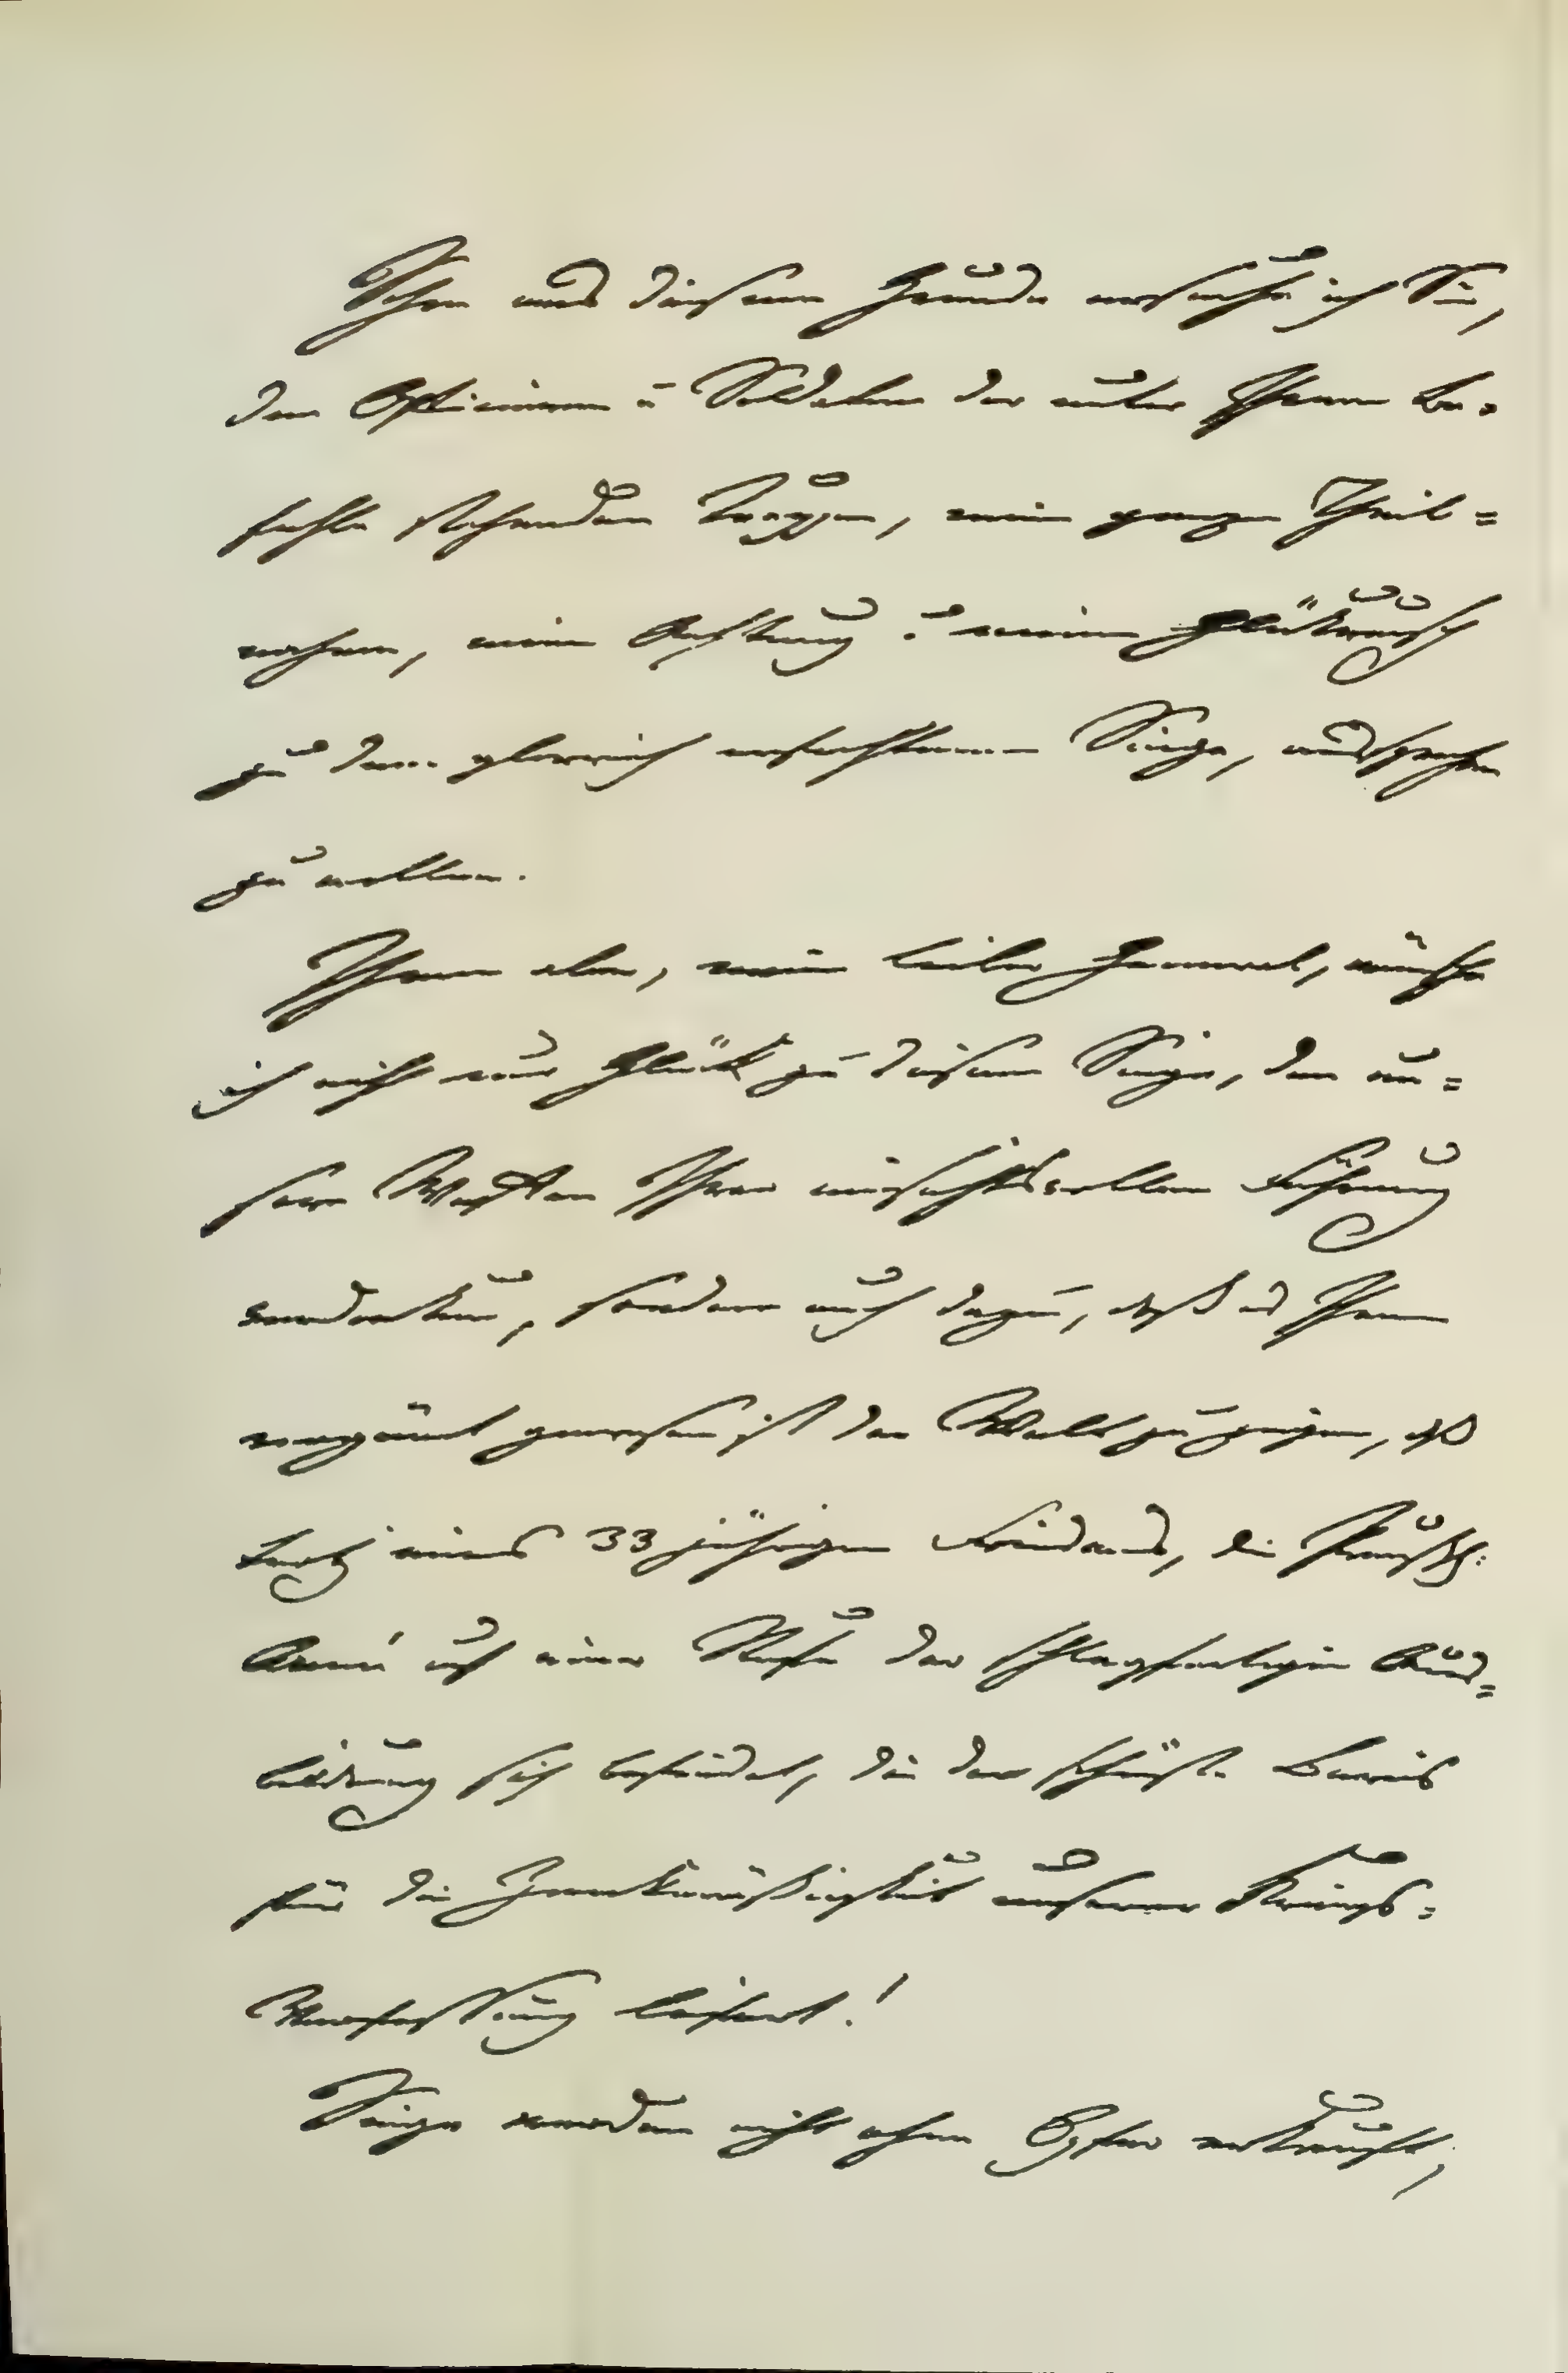 Schon aus diesem Grunde ersuche ich Sie,
den Offizieren u Soldaten der unter Ihrem Be-
fehle stehenden Truppen, mein ganzes Theil=
nehmen, meine Achtung u meinen Glückwunsch
zu dem glorreich erfochtenen Siege, aussprechen
zu wollen.
Ihnen aber, mein lieber General, wünsche
ich nicht nur Glück zu diesem Siege, den un=
sere Waffen Ihrer einsichtsvollen Führung
verdanken, sondern auch dazu, daß es Ihnen
vergönnt gewesen ist der Welt zu zeigen, daß
trotz eines 33 jährigen Friedens, die Preußs:
Armée auf einer Stufe der schlagfertigen Aus=
bildung sich befindet, die den schönsten Beweis
für die Zweckmäßigkeit unserer Kriegs=
Verfassung liefert!
Siege werden nicht ohne Opfer erkauft,